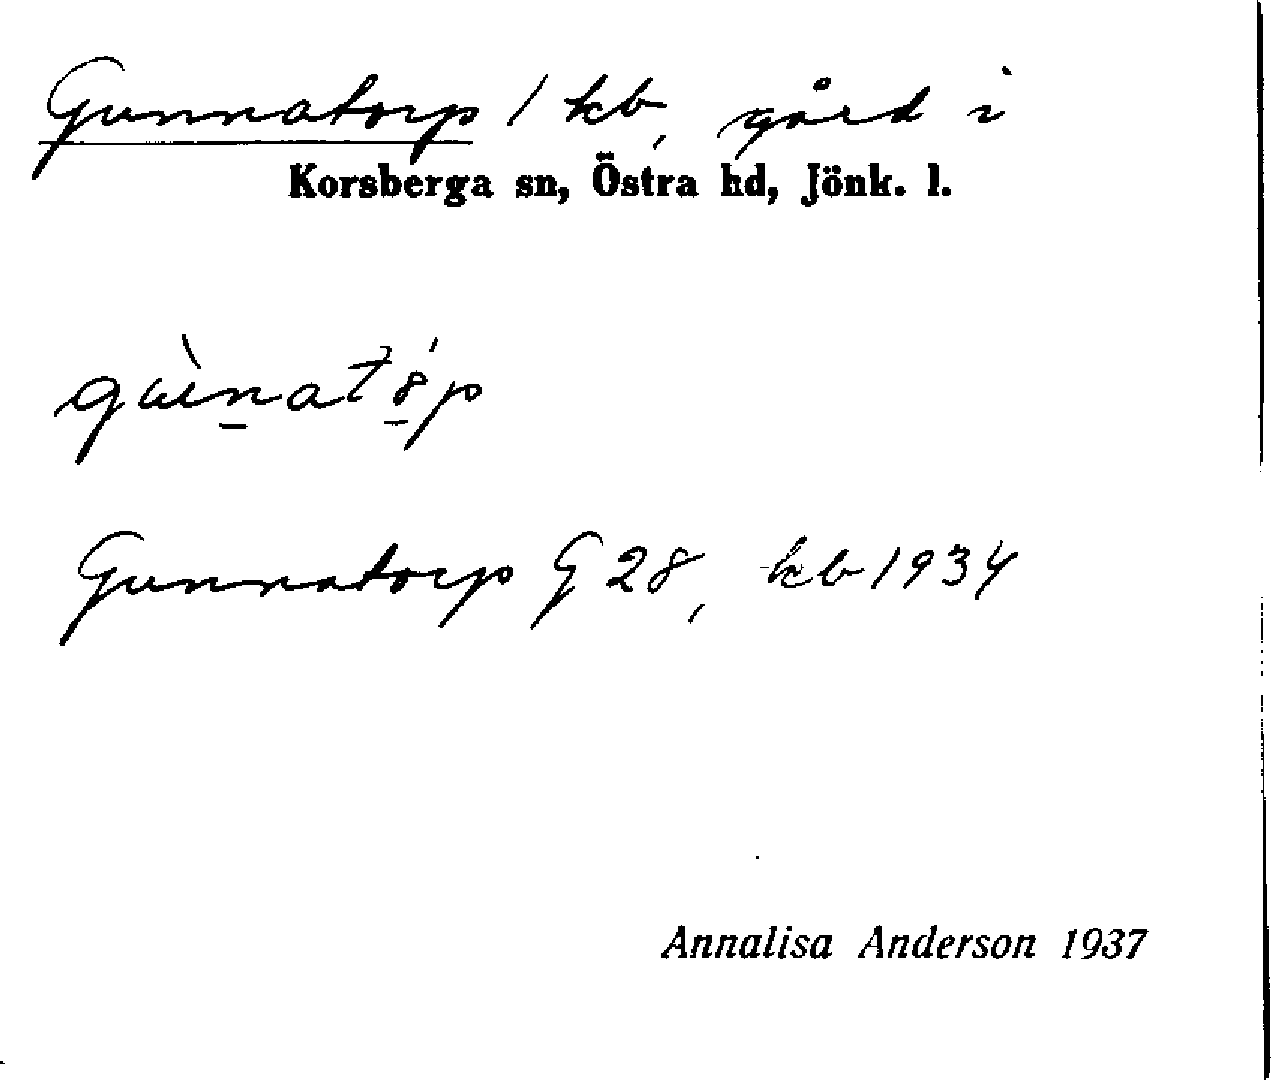 Gunnatorp 1 kb, gård i
Korsberga sn, Östra hd, Jönk. l.
Gunnatorp G 28, kb 1934
Annalisa Anderson 1937